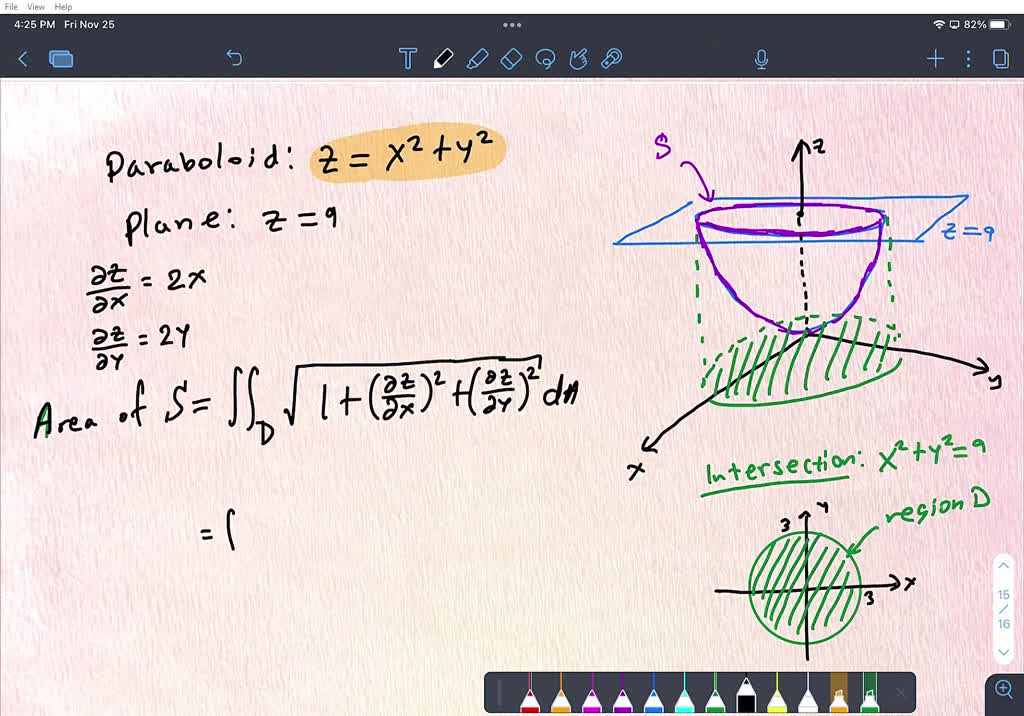 File View Help
4:25 PM Fri Nov 25
82%
T
Paraboloid: z = x² + y²
Plane: z = 9
∂z/∂x = 2x
∂z/∂y = 2y
Area of S = ∬_D √(1 + (∂z/∂x)² + (∂z/∂y)²) dA
= ∫
S
z
z = 9
y
x
Intersection: x² + y² = 9
region D
3 y
x
3
15
/
16